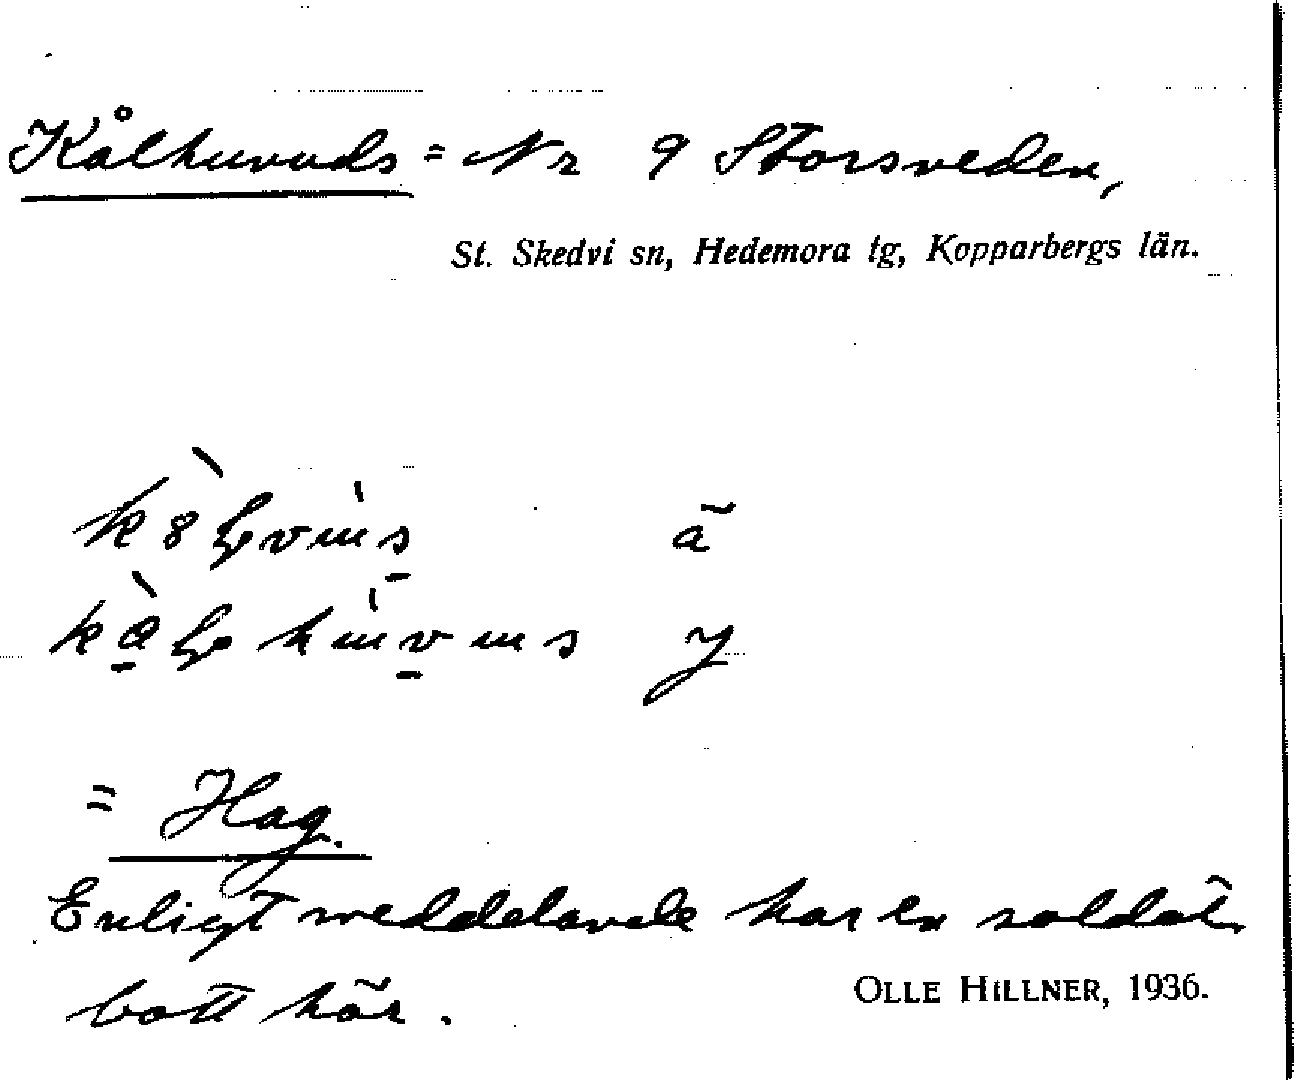 Kålhuvuds = Nr 9 Storsveden,
St. Skedvi sn, Hedemora tg, Kopparbergs län.
ä
y
= Hag.
Enligt meddelande har en soldat
bott här.
OLLE HILLNER, 1936.